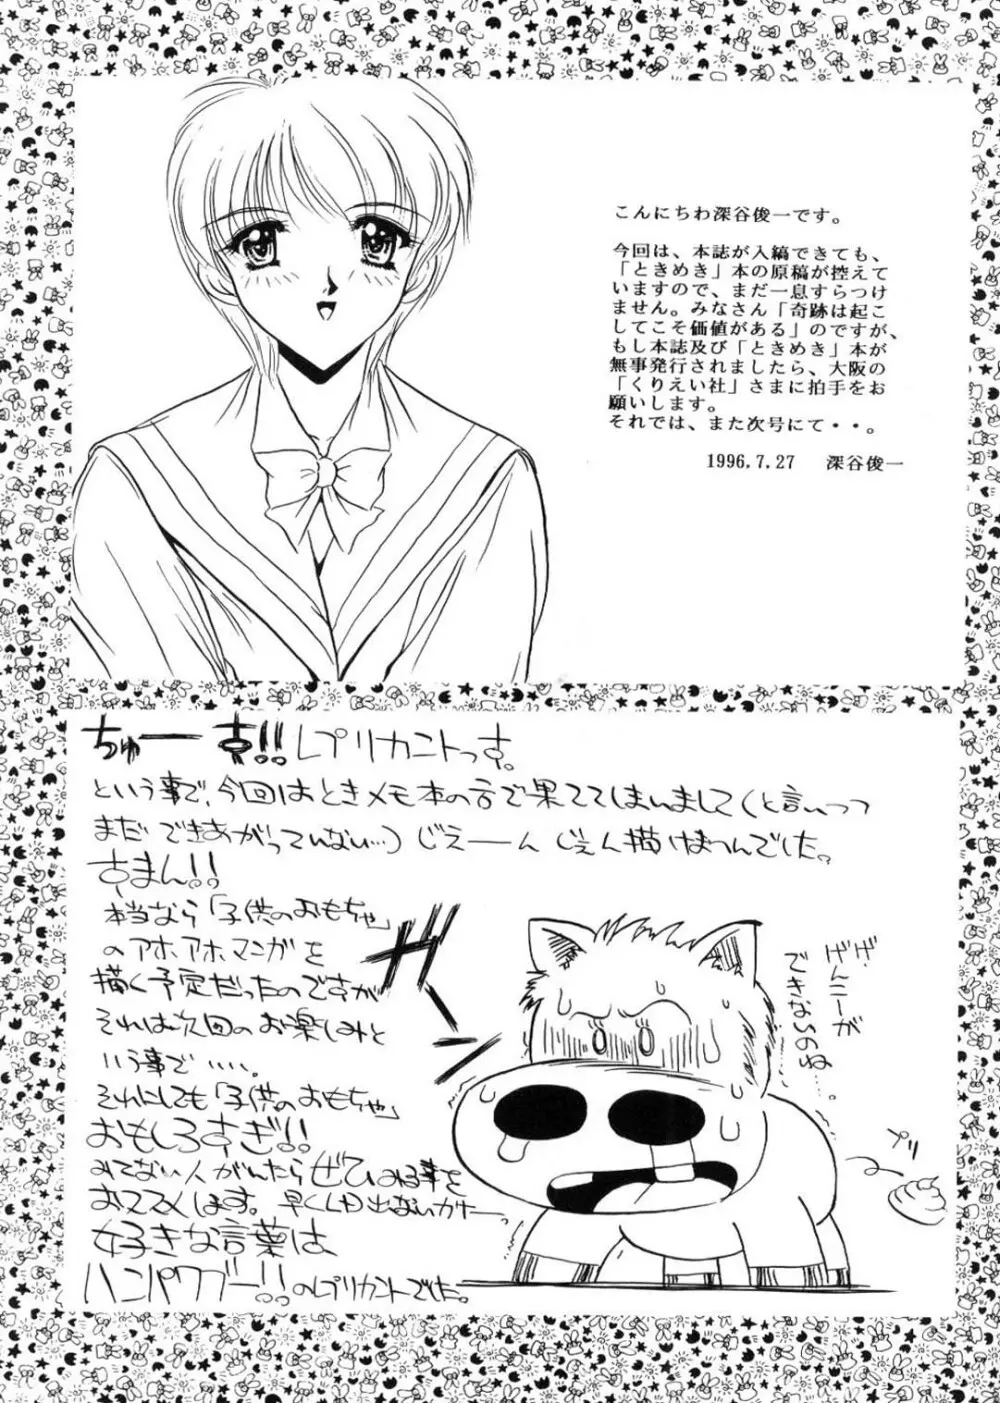 こんにちわ深谷俊一です。
今回は、本誌が入稿できても、
「ときめき」本の原稿が控えて
いますので、まだ一息すらつけ
ません。みなさん「奇跡は起こ
してこそ価値がある」のですが、
もし本誌及び「ときめき」本が
無事発行されましたら、大阪の
「くりえい社」さまに拍手をお
願いします。
それでは、また次号にて・・。
1996.7.27 深谷俊一
ちゅーす!!レプリカントっす。
という事で、今回はときメモ本の方で果ててしまいまして(と言いつつ
まだできあがっていない…)じぇーんじぇん描けませんでした。
すまん!!
本当なら「子供のおもちゃ」
のアホアホマンガを
描く予定だったのですが
それは次回のお楽しみと
いう事で……。
それにしても「子供のおもちゃ」
おもしろすぎ!!
みてない人がいたらぜひみる事を
おススメします。早くLD出ないかナー。
好きな言葉は、
ハンパワブー!!のレプリカントでした。
ガーン
げ、げんこーが
できないのね…
プリ